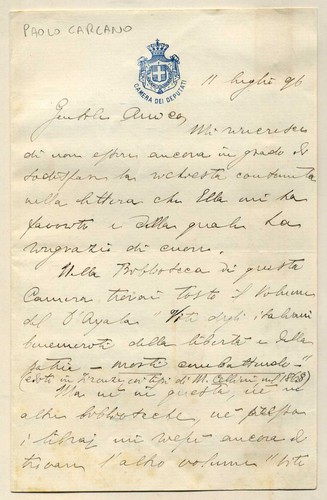 PAOLO CARCANO
CAMERA DEI DEPUTATI
11 luglio 96
Gentile Amico,
Mi rincresce
di non essere ancora in grado di
sodisfare la richiesta contenuta
nella lettera che Ella mi ha
favorito e della quale La
ringrazio di cuore.
Nella Biblioteca di questa
Camera trovai tosto il volume
del D'Ayala "Vite degli italiani
benemeriti della libertà e della
patria - morti combattendo"
(edito in Firenze coi tipi di M. Cellini nel 1868)
Ma nè in questa, nè in
altre biblioteche, nè presso
i librai mi venne ancora di
trovare l'altro volume "Vite